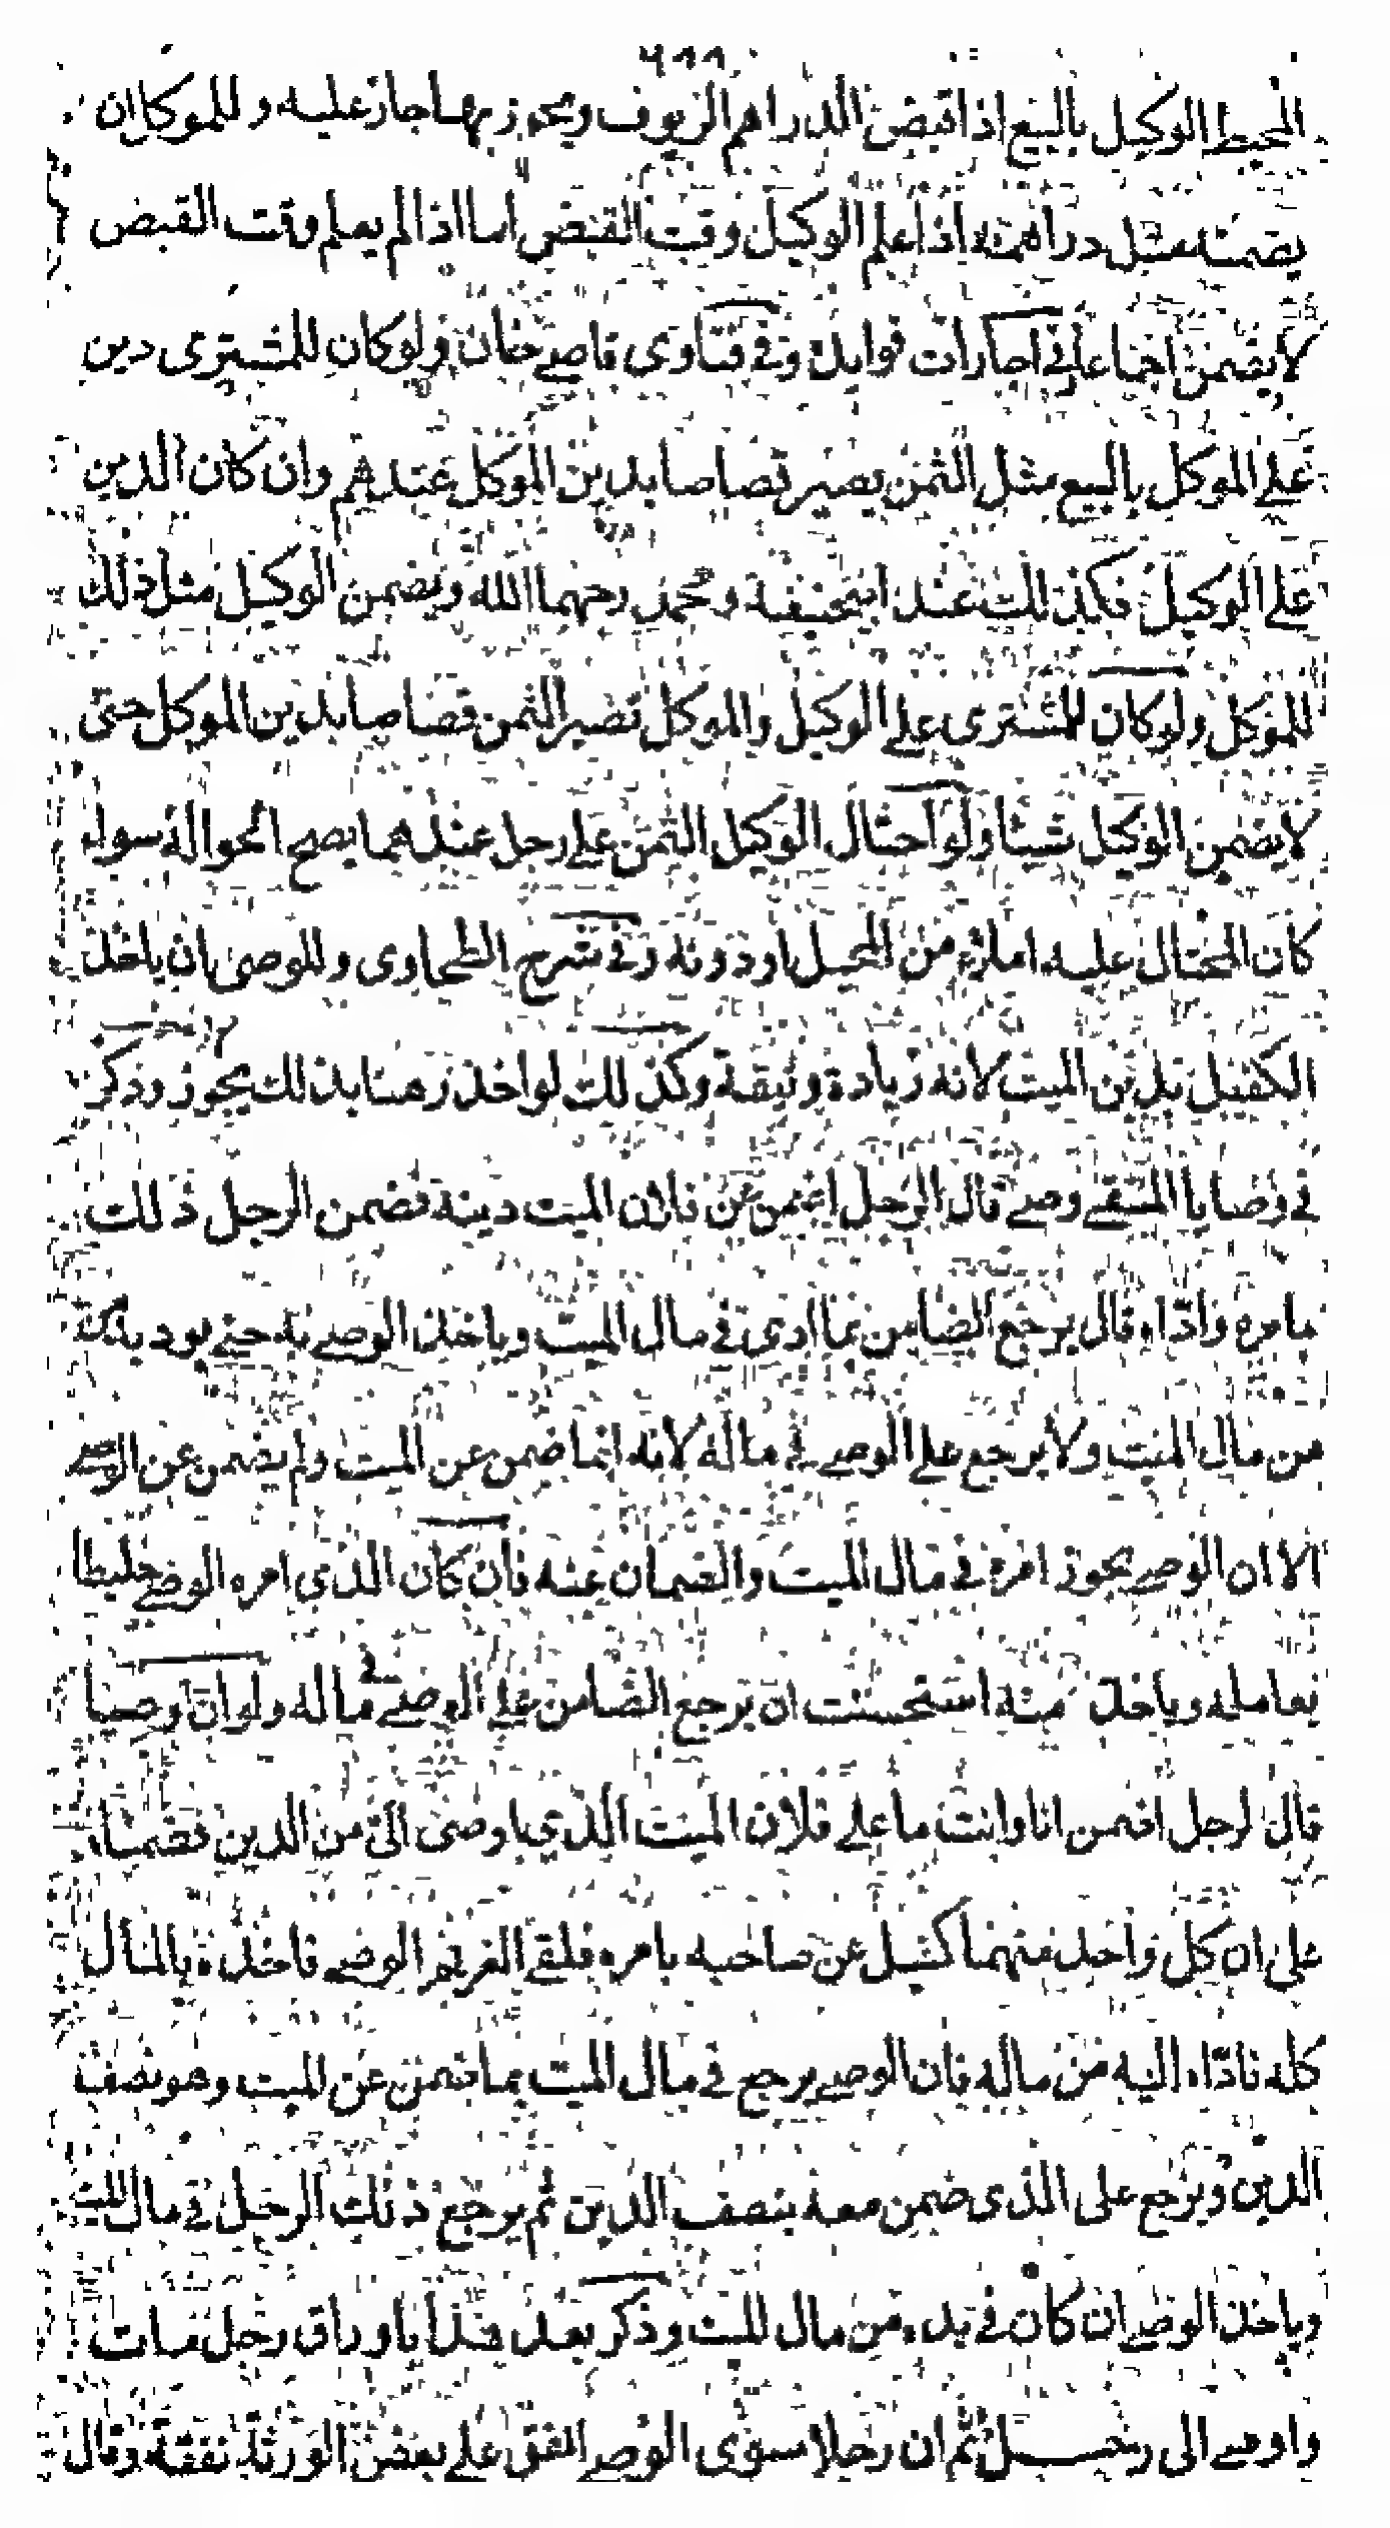 المحيط الوكيل بالبيع اذا قبض الدراهم الزيوف وتجوز بها جاز عليه وللموكل ان
يضمنه مثل دراهمه اذا علم الوكيل وقت القبض اما اذا لم يعلم وقت القبض
لا يضمن في اجارات فوايد وفي فتاوى قاضي خان ولو كان للمشترى دين
على الموكل بالبيع مثل الثمن يصير قصاصا بدين الموكل عندهم وان كان الدين
على الوكيل فكذلك عند ابي حنيفة ومحمد رحمهما الله ويضمن الوكيل مثل ذلك
للموكل ولو كان للمشترى على الوكيل والموكل تصير الثمن قصاصا بدين الموكل حتى
لا يضمن الوكيل شيئا ولو احتال الوكيل الثمن على رجل عندهما يصح الحوالة سواء
كان المحتال عليه املاء من المحيل او دونه وفي شرح الطحاوى وللوصى ان ياخذ
الكفيل بدين الميت لانه زيادة وثيقة وكذلك لو اخذ رهنا بذلك يجوز وذكر
في وصايا المنتقى وصي قال لرجل اضمن عن فلان الميت دينه فضمن الرجل ذلك
بامره واداه قال يرجع الضامن بما ادى في مال الميت وياخذ الوصي به حتى يوديه
من مال الميت ولا يرجع على الوصي في ماله لانه انما ضمن عن الميت ولم يضمن عن الوصي
الا ان الوصي يجوز امره في مال الميت والضمان عنه فان كان الذى امره الوصي خليطا
يعامله وياخذ منه استحسنت ان يرجع الضامن على الوصي في ماله ولو ان وصيا
قال لرجل اضمن انا وانت ما على فلان الميت الذي اوصى الى من الدين فضمناه
على ان كل واحد منهما كفيل عن صاحبه بامره فلقي الغريم الوصي فاخذه بالمال
كله فاداه اليه من ماله فان الوصي يرجع في مال الميت بما ضمن عن الميت وهو نصف
الدين ويرجع على الذى ضمن معه بنصف الدين ثم يرجع ذلك الرجل في مال الميت
وياخذ الوصي ان كان في يده من مال الميت وذكر بعد هذا باوراق رجل مات
واوصى الى رجل ثم ان رجلا سوى الوصي انفق على بعض الورثة نفقة وقال